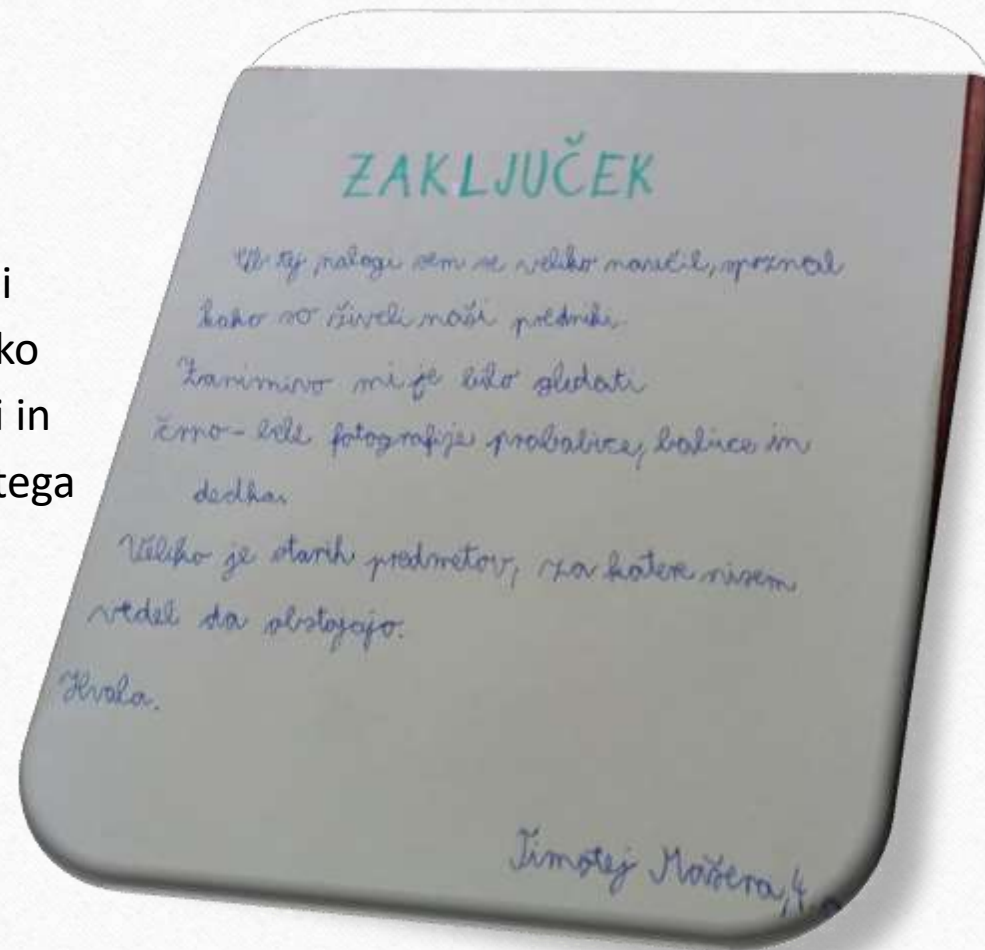 i
ko
i in
tega
ZAKLJUČEK
Ob tej nalogi sem se veliko naučil, spoznal
kako so živeli naši predniki.
Zanimivo mi je bilo gledati
črno-bele fotografije prababice, babice in
dedka.
Veliko je starih predmetov, za katere nisem
vedel da obstajajo.
Hvala.
Timotej Mašera, 4.